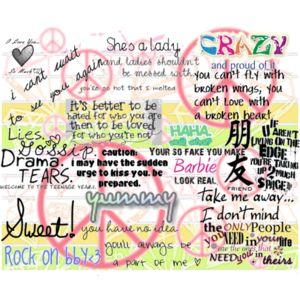 I Love You
So Much
i can't wait
to see you again
She's a lady
and ladies shouldn't
be messed with
you're so hot that i melted
CRAZY
and proud of it
you can't fly with
broken wings, you
can't love with
a broken heart.
It's better to be
hated for who you are
then to be loved
for who you're not
HAHA.
Lies.
Gossip.
Drama.
TEARS.
WELCOME TO THE TEENAGE YEARS.
caution:
i may have the sudden
urge to kiss you. be
prepared.
YOUR SO FAKE YOU MAKE
Barbie
LOOK REAL.
朋友
FRIEND
IF U
AREN'T
LIVING
ON THE
EDGE;
YOU'RE
TAKING
UP 2
MUCH
SPACE
Take me away...
yummy
Sweet!
Rock on bby<3
you have no idea
you'll always be
a part of me
I don't mind
the ONLY People
YOU NEED in your life
are the ones that
NEED YOU in theirs